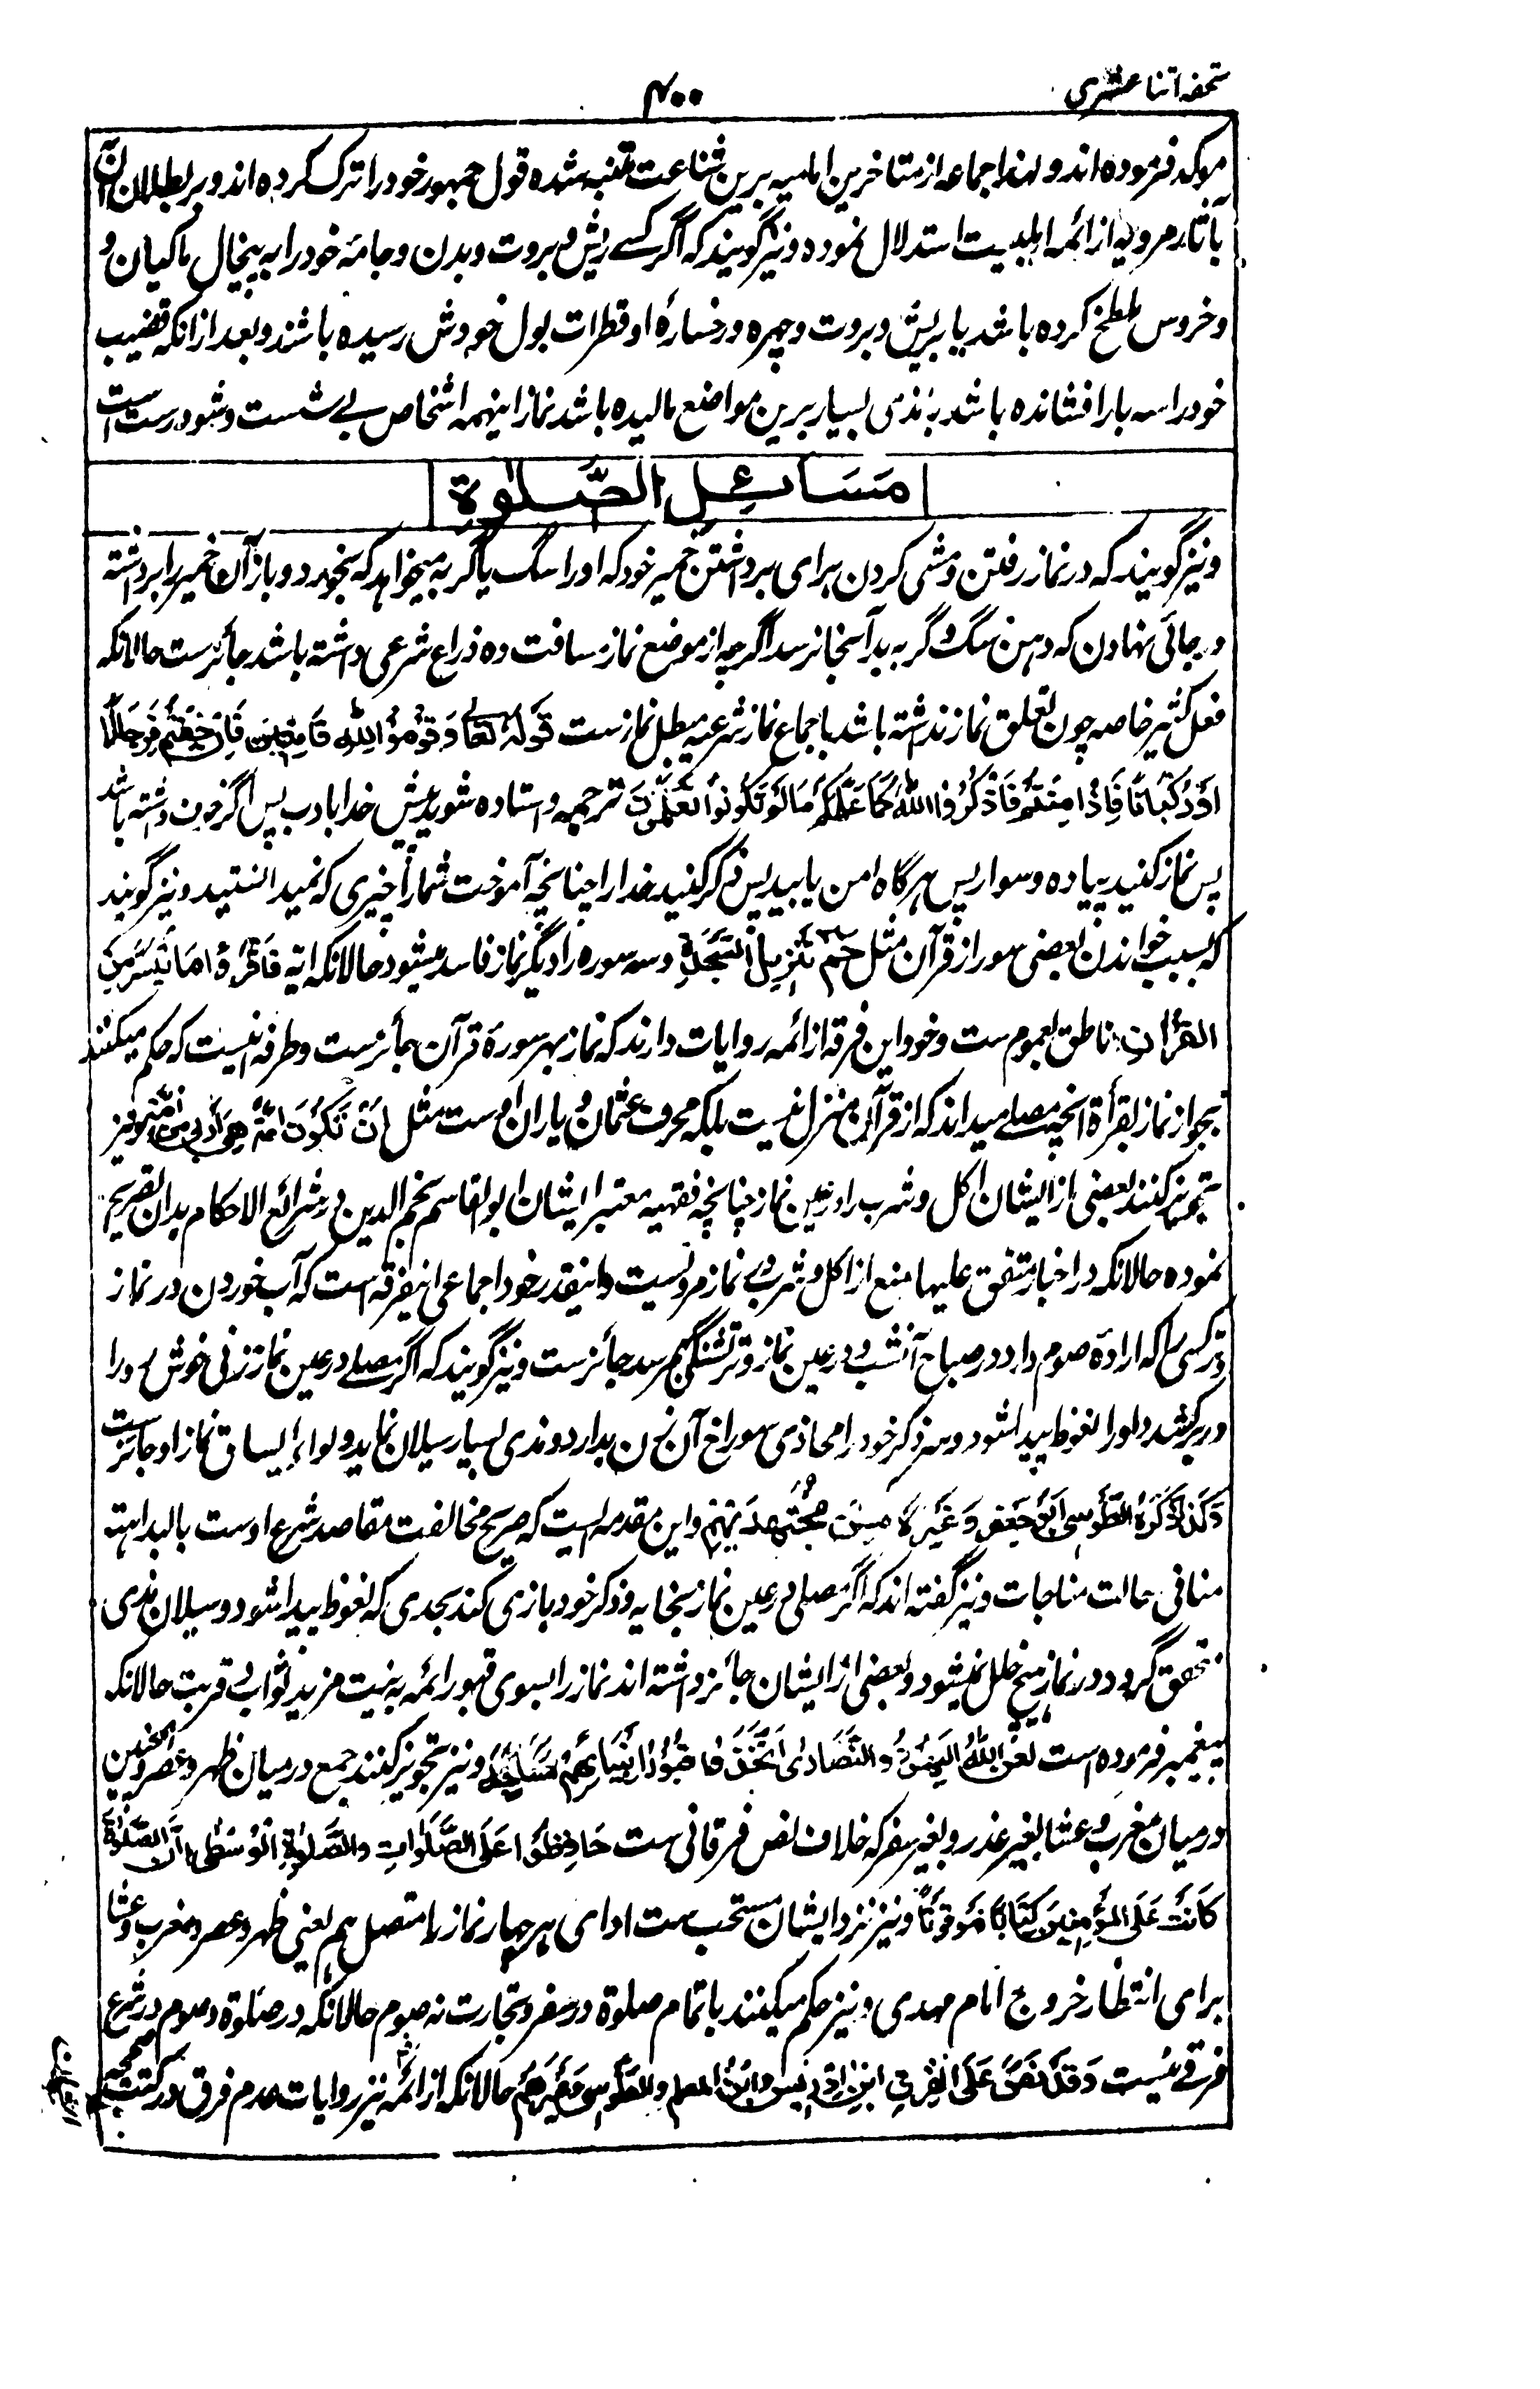 تحفه اثنا عشری
۴۰۰
موکد فرموده اند و لهذا جماعه از متاخرین امامیه برین شناعت متنبه شده قول جمهور خود را ترک کرده اند و بر بطلان آن
بآثار مرویه از ائمه اهلبیت استدلال نموده و نیز گویند که اگر کسے ریش و بروت و بدن و جامهٔ خود را به پیخال ماکیان و
و خروس ملطخ کرده باشد یا بریش و بروت و چهره و رخسارهٔ او قطرات بول خودش رسیده باشند و بعد از انکه قضیب
خود را سه بار افشانده باشد مذی بسیار برین مواضع مالیده باشد نماز اینهمه اشخاص بے شست و شو درست است
مَسَائِلُ الصَّلٰوةِ
و نیز گویند که در نماز رفتن و مشی کردن برای برداشتن خمیر خود که او را سگ یا گربه میخواهد که بخورد و باز آن خمیر را برداشته
در جائی نهادن که دهن سگ و گربه بدآنجا نرسد اگرچه از موضع نماز مسافت ده ذراع شرعی داشته باشد جائزست حالانکه
فعل کثیر خاصه چون تعلق نماز نداشته باشد باجماع نماز شرعیه مبطل نمازست قَولُهُ تَعَالٰے وَقُومُوا لِلّٰهِ قَانِتِینَ فَاِنْ خِفْتُمْ فَرِجَالًا
اَوْ رُکْبَانًا فَاِذَا اَمِنْتُمْ فَاذْکُرُوا اللّٰهَ کَمَا عَلَّمَکُمْ مَا لَمْ تَکُونُوا تَعْلَمُوْنَ ترجمه و استاده شوید پیش خدا بادب پس اگر خوف داشته باشد
پس نماز کنید پیاده و سوار پس هرگاه امن یابید پس ذکر کنید خدا را چنانچه آموخت شما را چیزی که نمیدانستید و نیز گویند
که بسبب خواندن بعضی سور از قرآن مثل حٰم تَنزِیل السَّجْدَه و سه سوره را دیگر نماز فاسد میشود حالانکه آیه فَاقْرَؤُا مَا تَیَسَّرَ مِنَ
القُرْاٰنِ ناطق بعموم ست و خود این فرقه از ائمه روایات دارند که نماز بهر سورهٔ قرآن جائزست و طرفه اینست که حکم میکنند
بجواز نماز بقرأة آنچه مصلے میداند که از قرآن منزل نیست بلکه محرف عثمان و یاران اوست مثل اَنْ تَکُوْنَ اُمَّةٌ هِیَ اَرْبٰی مِنْ اُمَّةٍ و نیز
تجویز کنند بعضی از ایشان اکل و شرب را در عین نماز چنانچه فقیه معتبر ایشان ابوالقاسم نجم الدین در شرائع الاحکام بدان تصریح
نموده حالانکه در اخبار متفق علیها منع از اکل و شرب در نماز مرویست و اینقدر خود اجماعی اینفرقه است که آب خوردن در نماز
وتر کسی را که ارادهٔ صوم دارد در صباح آنشب و در عین نماز وتر تشنگی بهم رسد جائزست و نیز گویند که اگر مصلے در عین نماز زنی خوش رو را
در بر کشد و او را نغوظ پیدا شود و سر ذکر خود را محاذی سوراخ آن زن بدارد و مذی بسیار سیلان نماید نماز او جائز ست
وَکَذَا ذَکَرَهُ الطُّوْسِی اَبُو جَعْفَر وَغَیْرُهُ مِنْ مُجْتَهِدِیهِم و این مقدمه ایست که صریح مخالفت مقاصد شرع اوست بالبداهته
منافی حالت مناجات و نیز گفته اند که اگر مصلی در عین نماز بخایه و ذکر خود بازی کند بحدی که نغوظ پیدا شود و سیلان مذی
متحقق گردد در نماز هیچ خلل نمیشود و بعضی از ایشان جائز داشته اند نماز را بسوی قبور ائمه به نیت مزید ثواب و قربت حالانکه
پیغمبر فرموده است لَعَنَ اللّٰهُ الیَهُوْدَ وَالنَّصَارٰی اتَّخَذُوا قُبُوْرَ اَنْبِیَائِهِمْ مَسَاجِدَ و نیز تجویز کنند جمع در میان ظهر و عصر و همچنین
در میان مغرب و عشا بغیر عذر و بغیر سفر که خلاف نص فرقانی ست حَافِظُوْا عَلَی الصَّلَوَاتِ وَالصَّلٰوةِ الْوُسْطٰی اِنَّ الصَّلٰوةَ
کَانَتْ عَلَی الْمُؤْمِنِیْنَ کِتَابًا مَوْقُوْتًا و نیز نزد ایشان مستحب ست ادای هر چهار نماز را متصل هم یعنی ظهر و عصر و مغرب و عشا
برای انتظار خروج امام مهدی و نیز حکم میکنند باتمام صلوة در سفر تجارت نه صوم حالانکه در صلوة و صوم در شرع
فرقے نیست وَقَدْ نَصَّ عَلَی الفَرْقِ ابنُ اِدْرِیْس وابْنُ المعلم والطُّوْسِی وَغَیْرُهُمْ حالانکه از ائمه نیز روایات عدم فرق در کتب